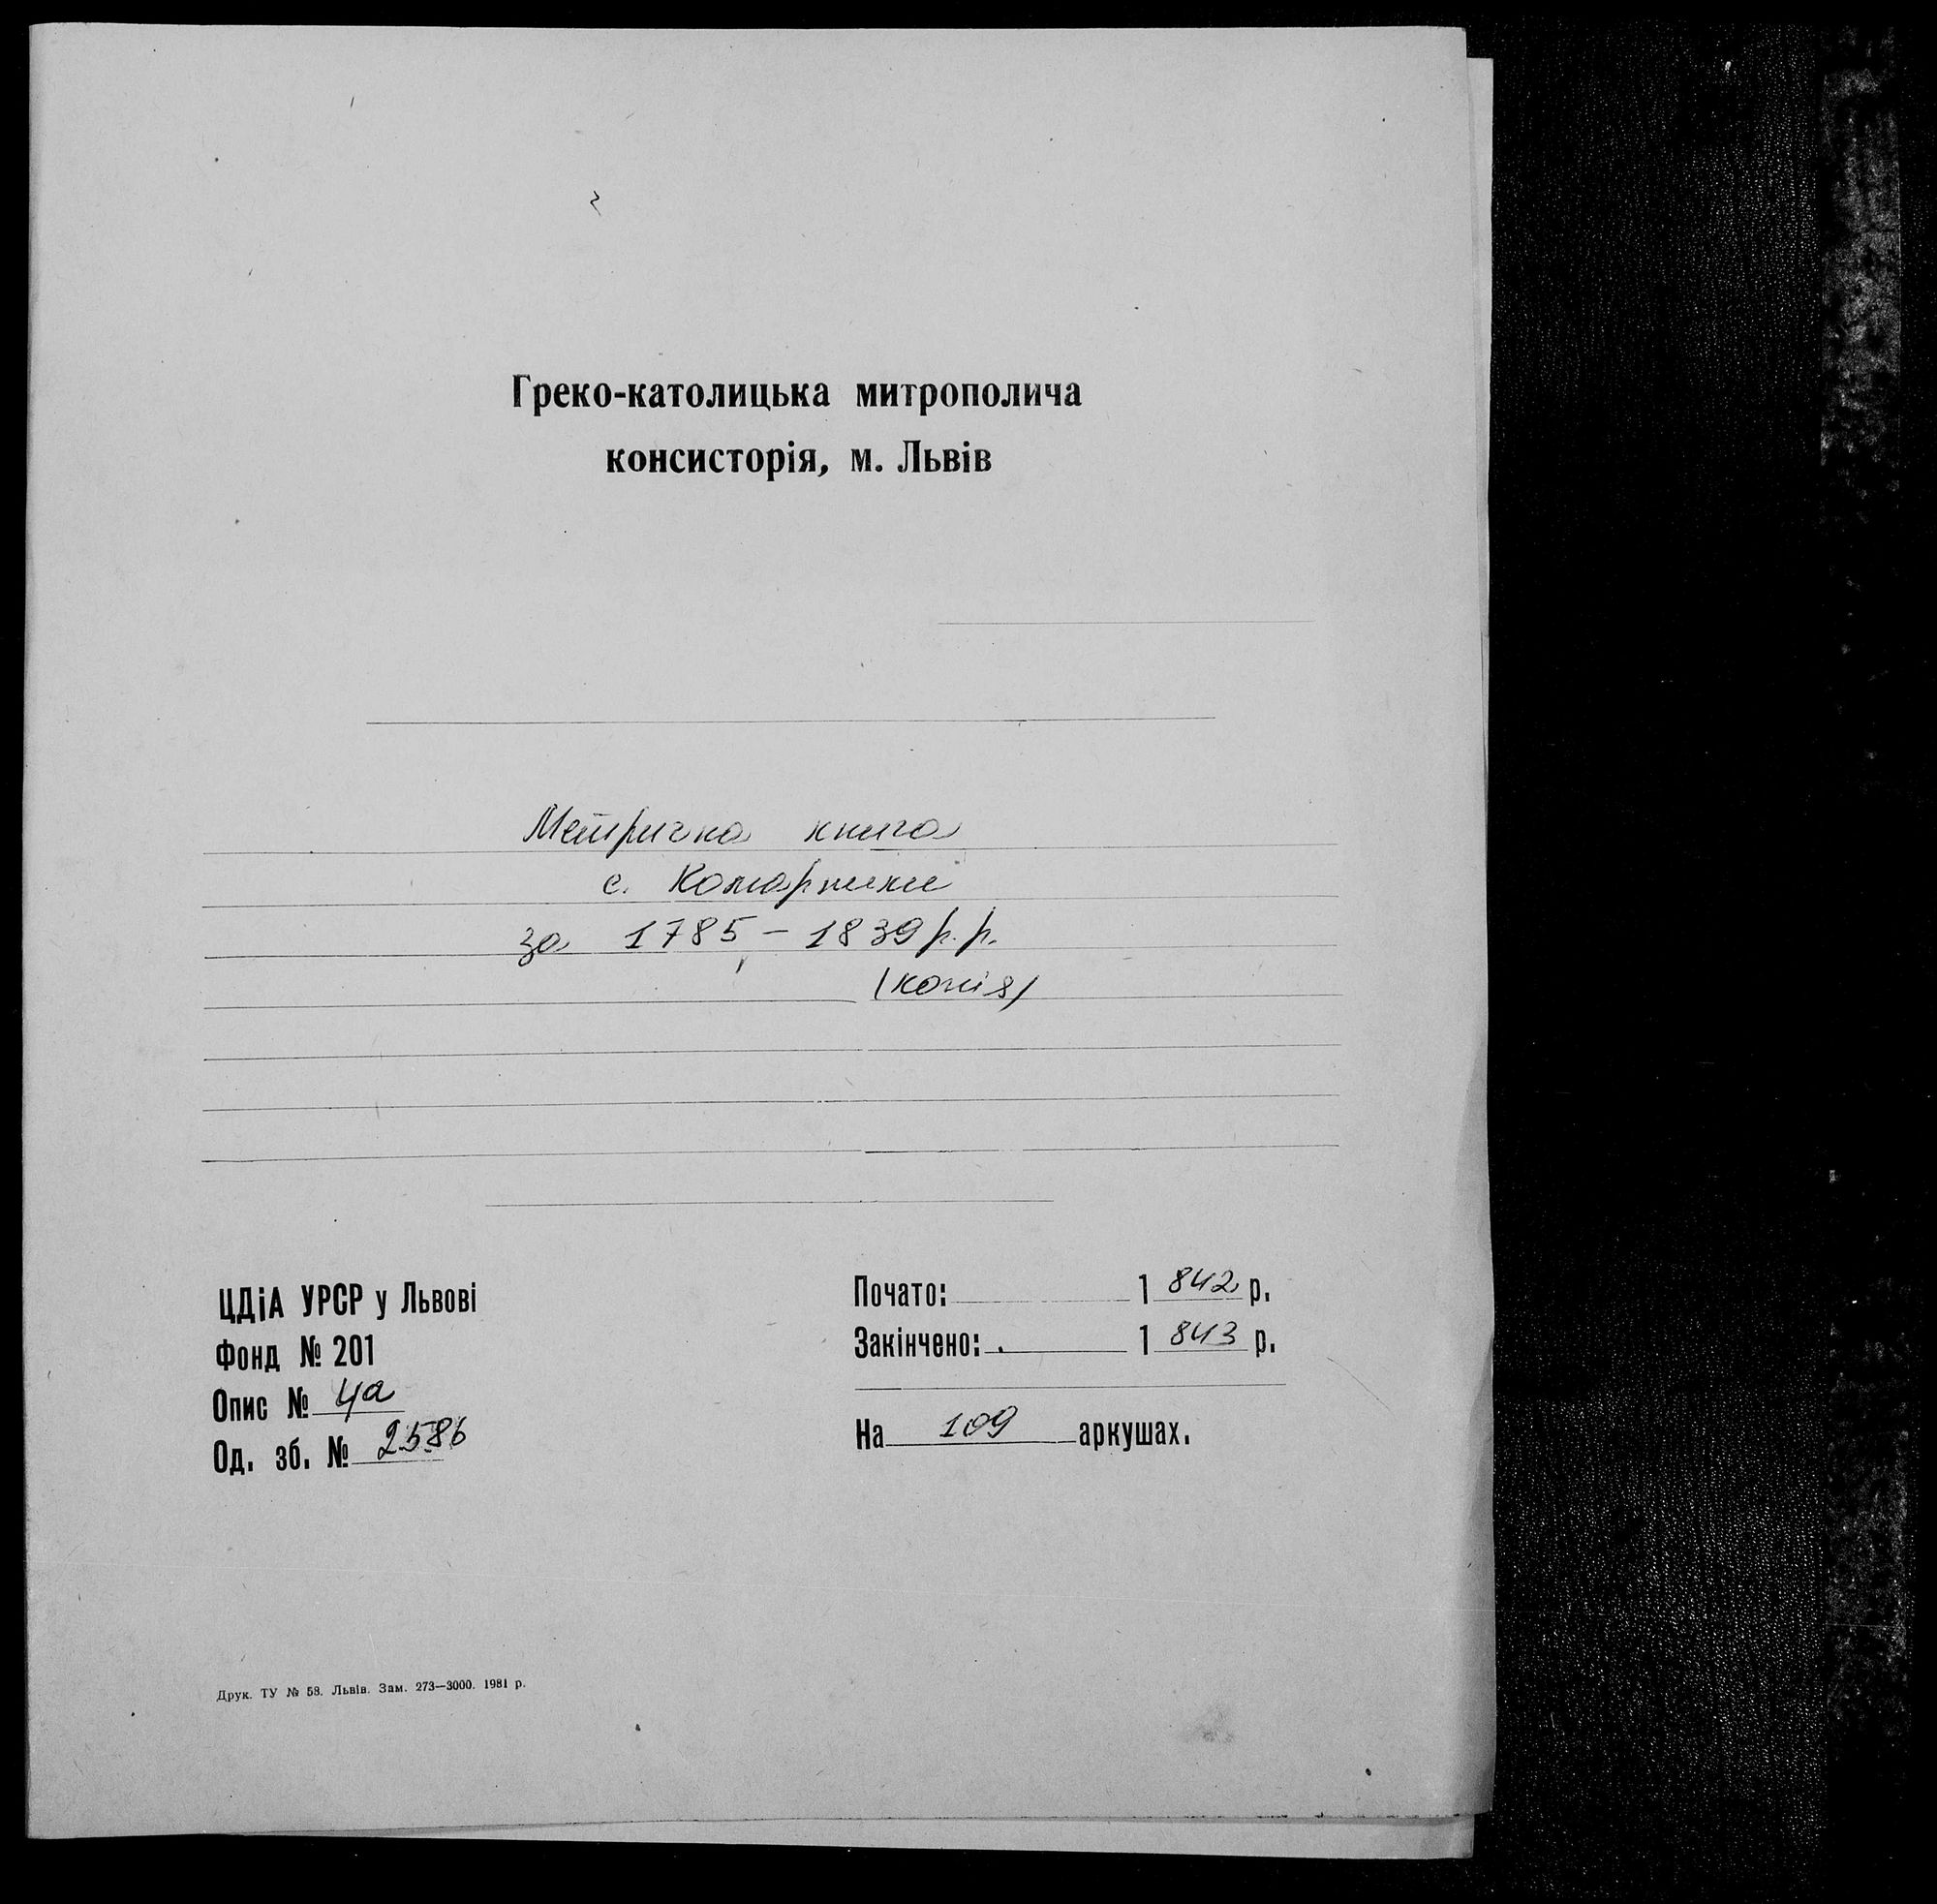 Греко-католицька митрополича
консисторія, м. Львів
Метрична книга
с. Комарники
за 1785 – 1839 р.р.
(копія)
ЦДіА УРСР у Львові
Фонд № 201
Опис № 4а
Од. зб. № 2586
Почато: 1842 р.
Закінчено: 1843 р.
На 109 аркушах.
Друк. ТУ № 58. Львів. Зам. 273—3000. 1981 р.